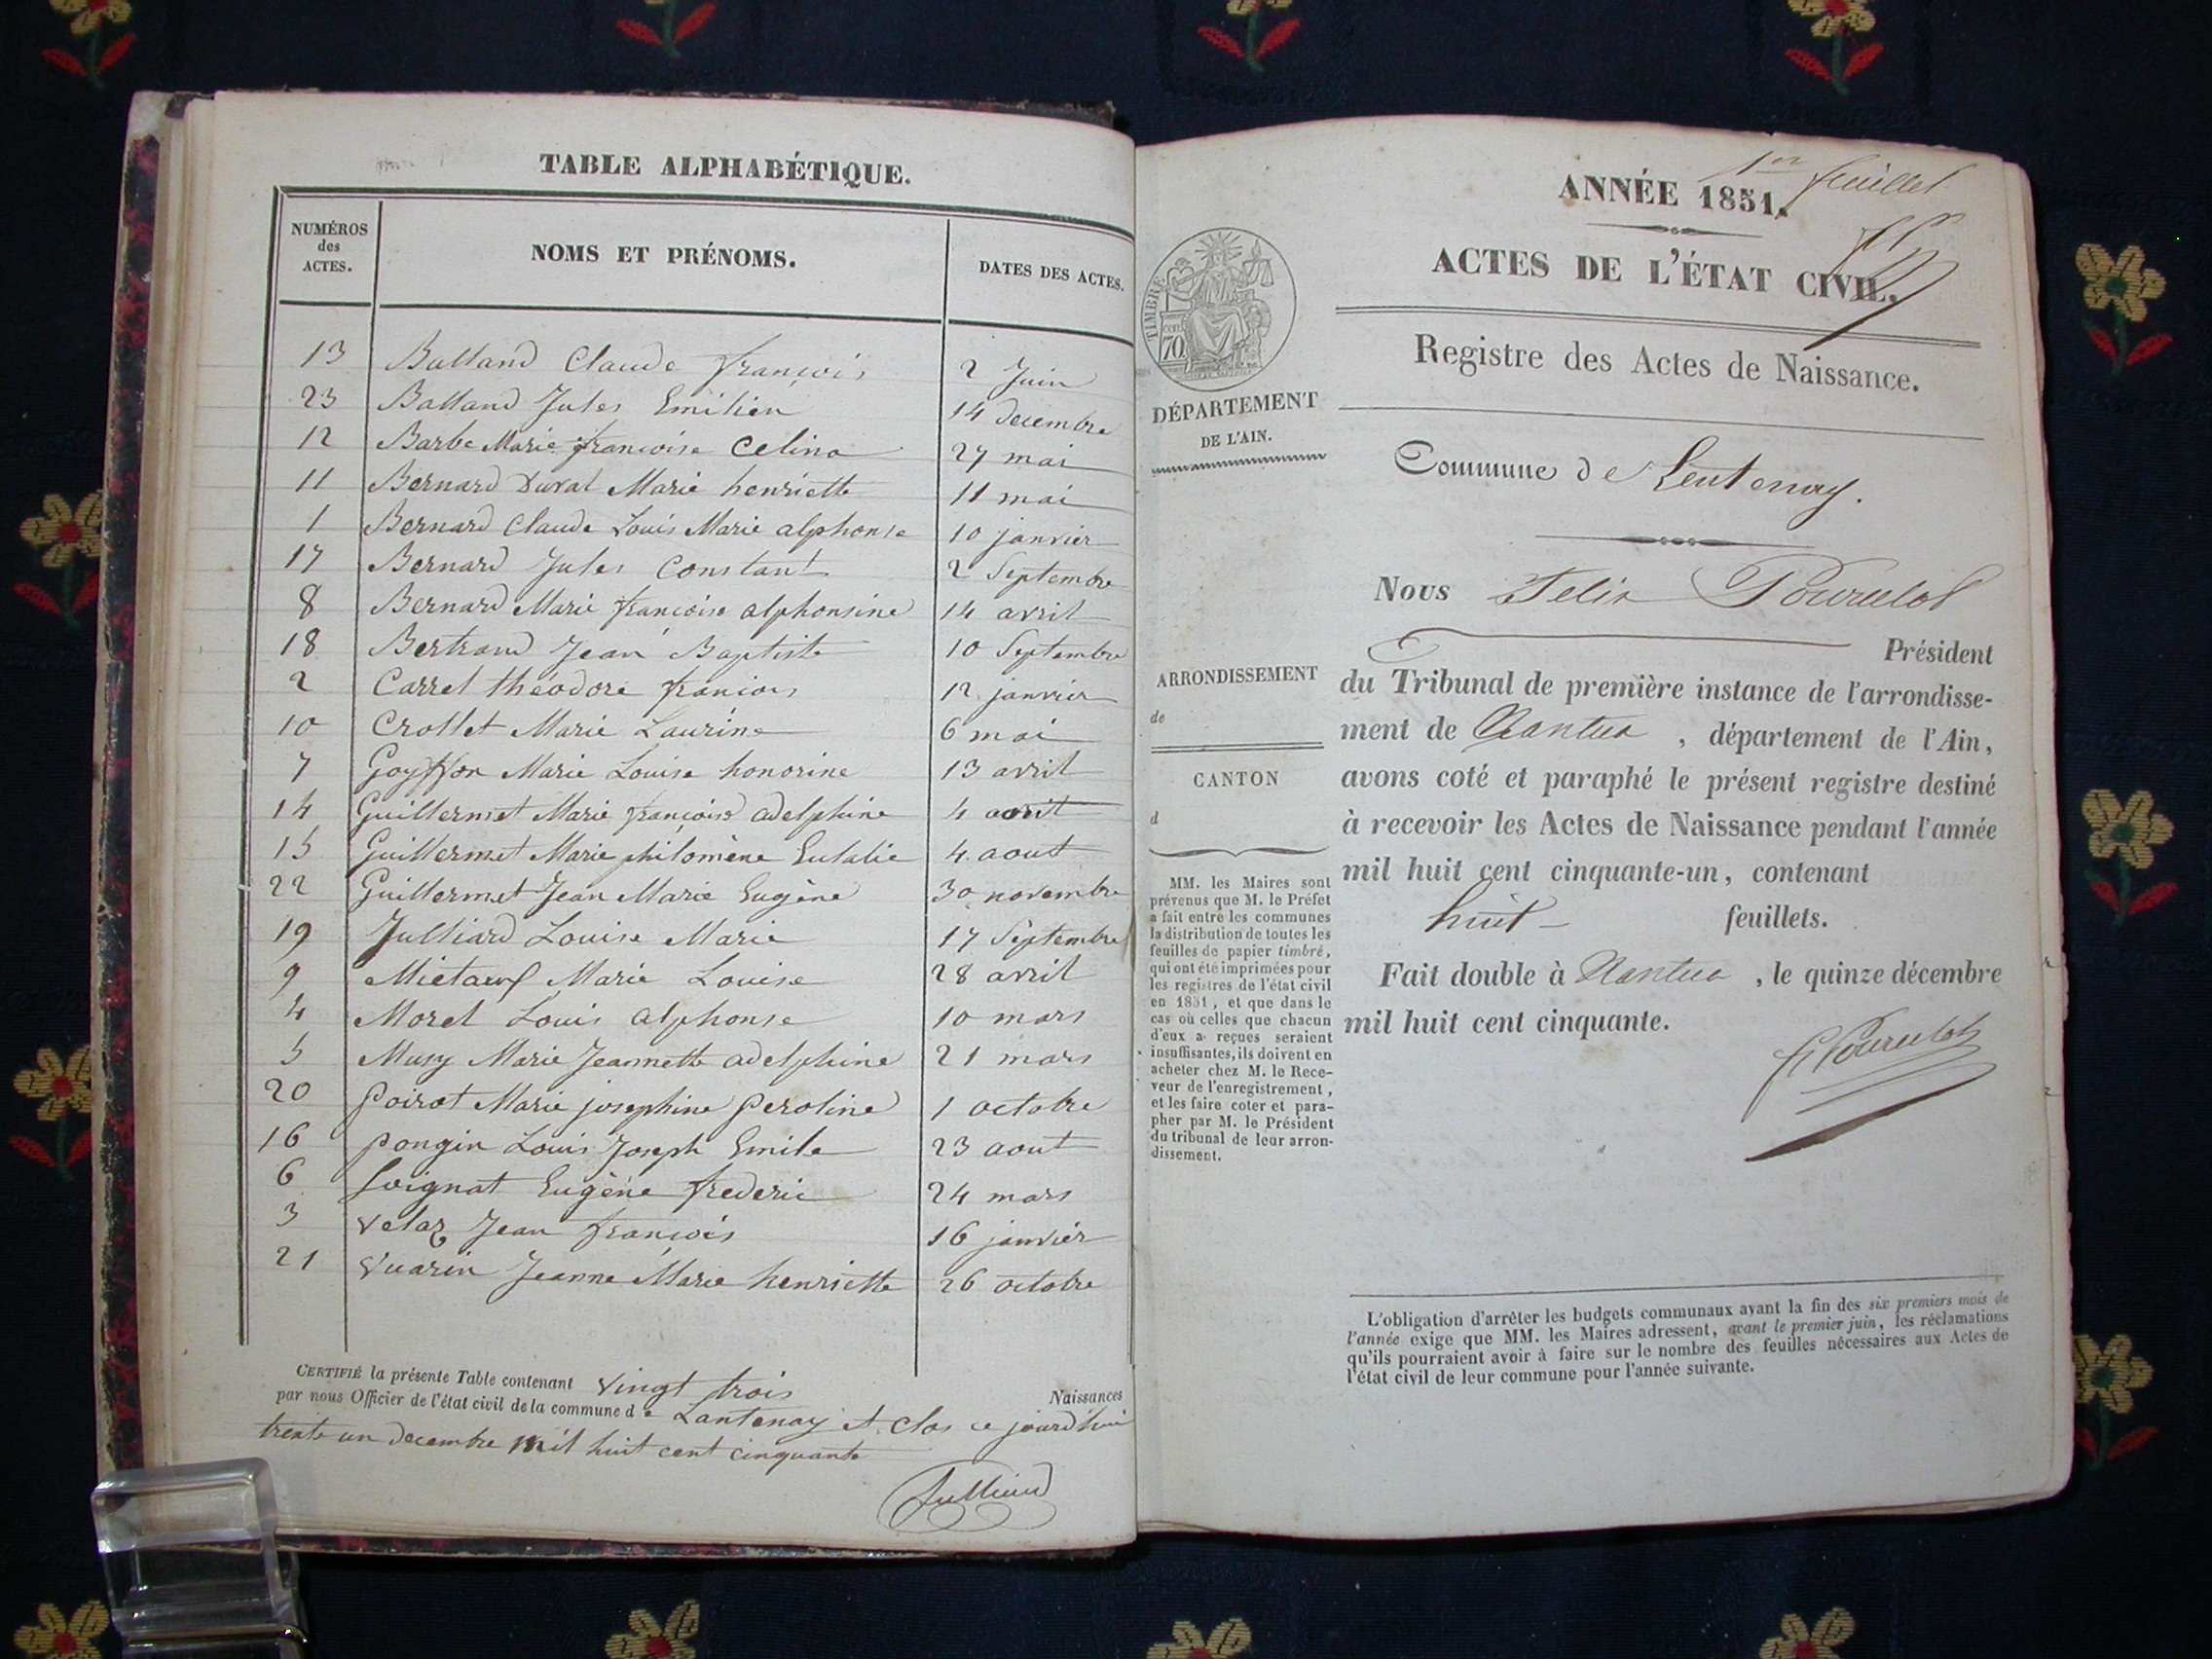 TABLE ALPHABÉTIQUE.
NUMÉROS
des
ACTES.
NOMS ET PRÉNOMS.
DATES DES ACTES.
13 Balland Claude françois 2 Juin
23 Balland Jules Emilien 14 decembre
12 Barbe Marie françoise Celina 27 mai
11 Bernard Duval Marie henriette 11 mai
1 Bernard Claude Louis Marie alphonse 10 janvier
17 Bernard Jules Constant 2 Septembre
8 Bernard Marie françoise alphonsine 14 avril
18 Bertrand Jean Baptiste 10 Septembre
2 Carrel théodore françois 12 janvier
10 Crollet Marie Laurine 6 mai
7 Goyffon Marie Louise honorine 13 avril
14 Guillermet Marie françoise adelphine 4 aout
15 Guillermet Marie philomène Eulalie 4 aout
22 Guillermet Jean Marie Eugène 30 novembre
19 Julliard Louise Marie 17 Septembre
9 Marie Louise 28 avril
4 Morel Louis alphonse 10 mars
5 Musy Marie Jeannette adelphine 21 mars
20 Poirot Marie josephine Peroline 1 octobre
16 pongin Louis Joseph Emile 23 aout
6 Soignat Eugène frederic 24 mars
3 velaz Jean françois 16 janvier
21 Vuarin Jeanne Marie henriette 26 octobre
CERTIFIÉ la présente Table contenant vingt trois Naissances
par nous Officier de l'état civil de la commune de Lantenay et clos ce jourd'hui
trente un decembre mil huit cent cinquante
Julliard
1er feuillet
ANNÉE 1851.
ACTES DE L'ÉTAT CIVIL.
TIMBRE
cen
70
Registre des Actes de Naissance.
DÉPARTEMENT
DE L'AIN.
Commune de Lentenay.
Nous Felix Pourcelot
Président
du Tribunal de première instance de l'arrondisse-
ment de Nantua, département de l'Ain,
avons coté et paraphé le présent registre destiné
à recevoir les Actes de Naissance pendant l'année
mil huit cent cinquante-un, contenant
huit feuillets.
Fait double à Nantua, le quinze décembre
mil huit cent cinquante.
Pourcelot
ARRONDISSEMENT
de
CANTON
d
MM. les Maires sont
prévenus que M. le Préfet
a fait entre les communes
la distribution de toutes les
feuilles de papier timbré,
qui ont été imprimées pour
les registres de l'état civil
en 1851, et que dans le
cas où celles que chacun
d'eux a reçues seraient
insuffisantes, ils doivent en
acheter chez M. le Rece-
veur de l'enregistrement,
et les faire coter et para-
pher par M. le Président
du tribunal de leur arron-
dissement.
L'obligation d'arrêter les budgets communaux avant la fin des six premiers mois de
l'année exige que MM. les Maires adressent, avant le premier juin, les réclamations
qu'ils pourraient avoir à faire sur le nombre des feuilles nécessaires aux Actes de
l'état civil de leur commune pour l'année suivante.